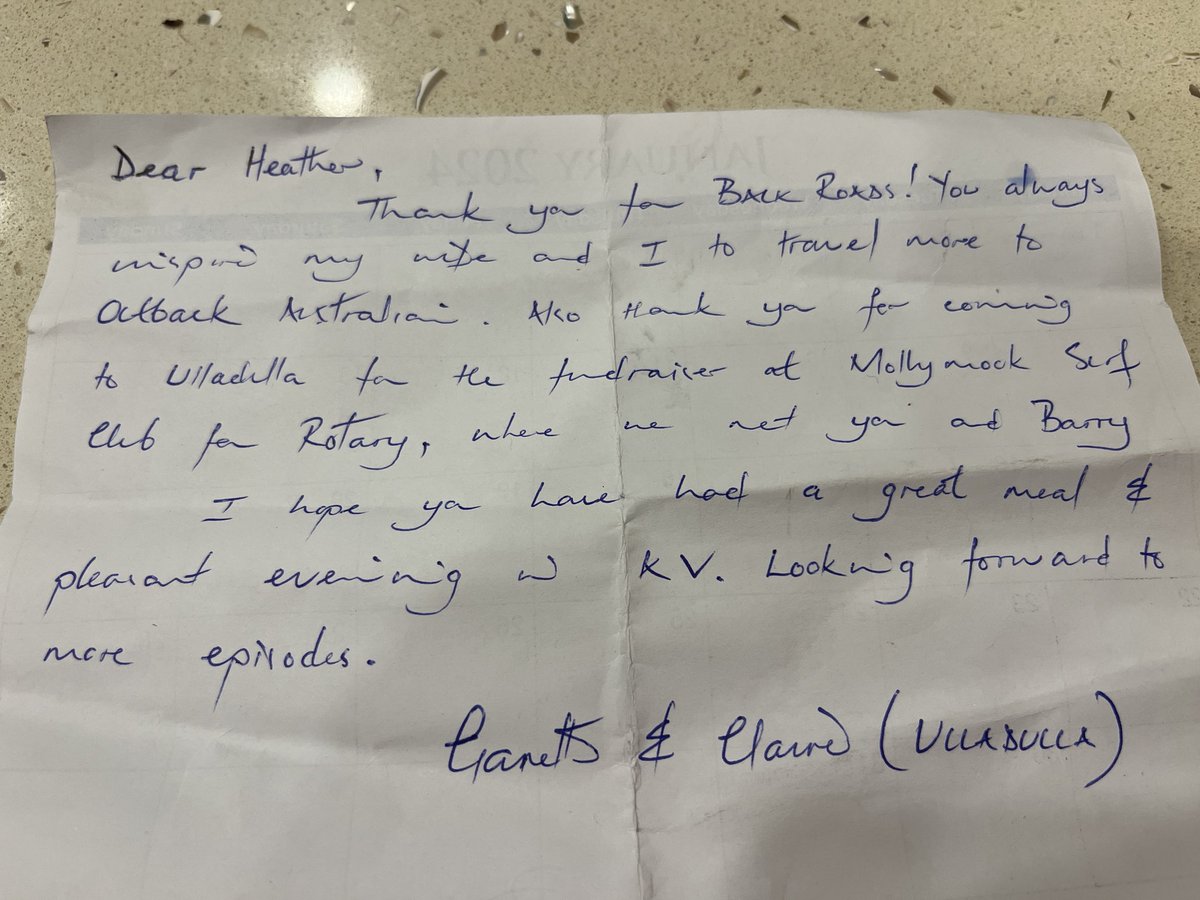 Dear Heather,
Thank you for BACK ROADS! You always
inspire my wife and I to travel more to
Outback Australian. Also thank you for coming
to Ulladulla for the fundraiser at Mollymook Surf
Club for Rotary, where we met you and Barry
I hope you have had a great meal &
pleasant evening in KV. Looking forward to
more episodes.
& Claire (ULLADULLA)
JANUARY 2024
23